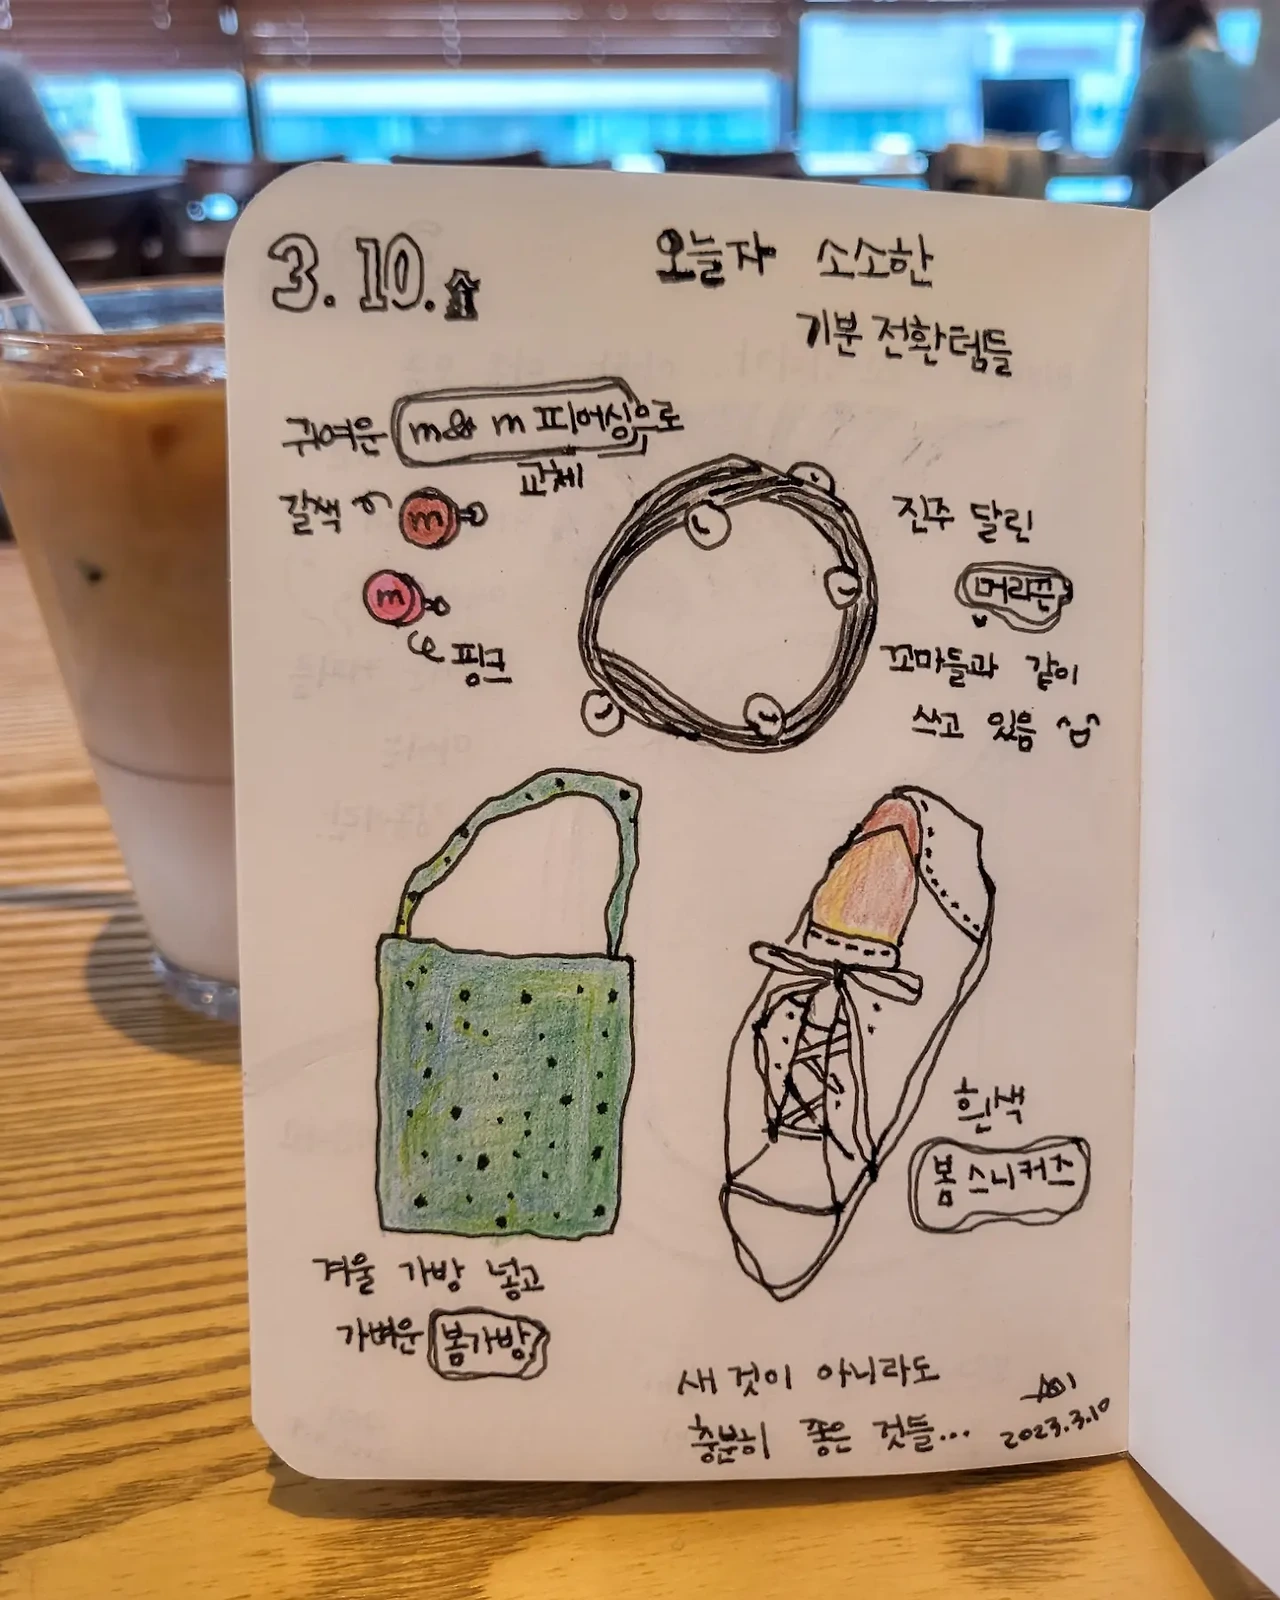 3. 10. 金
오늘자 소소한
기분 전환템들
귀여운 m&m 피어싱으로
교체
갈색
m
m
핑크
진주 달린
머리끈
꼬마들과 같이
쓰고 있음
겨울 가방 넣고
가벼운 봄가방
흰색
봄 스니커즈
새 것이 아니라도
충분히 좋은 것들...
2023.3.10